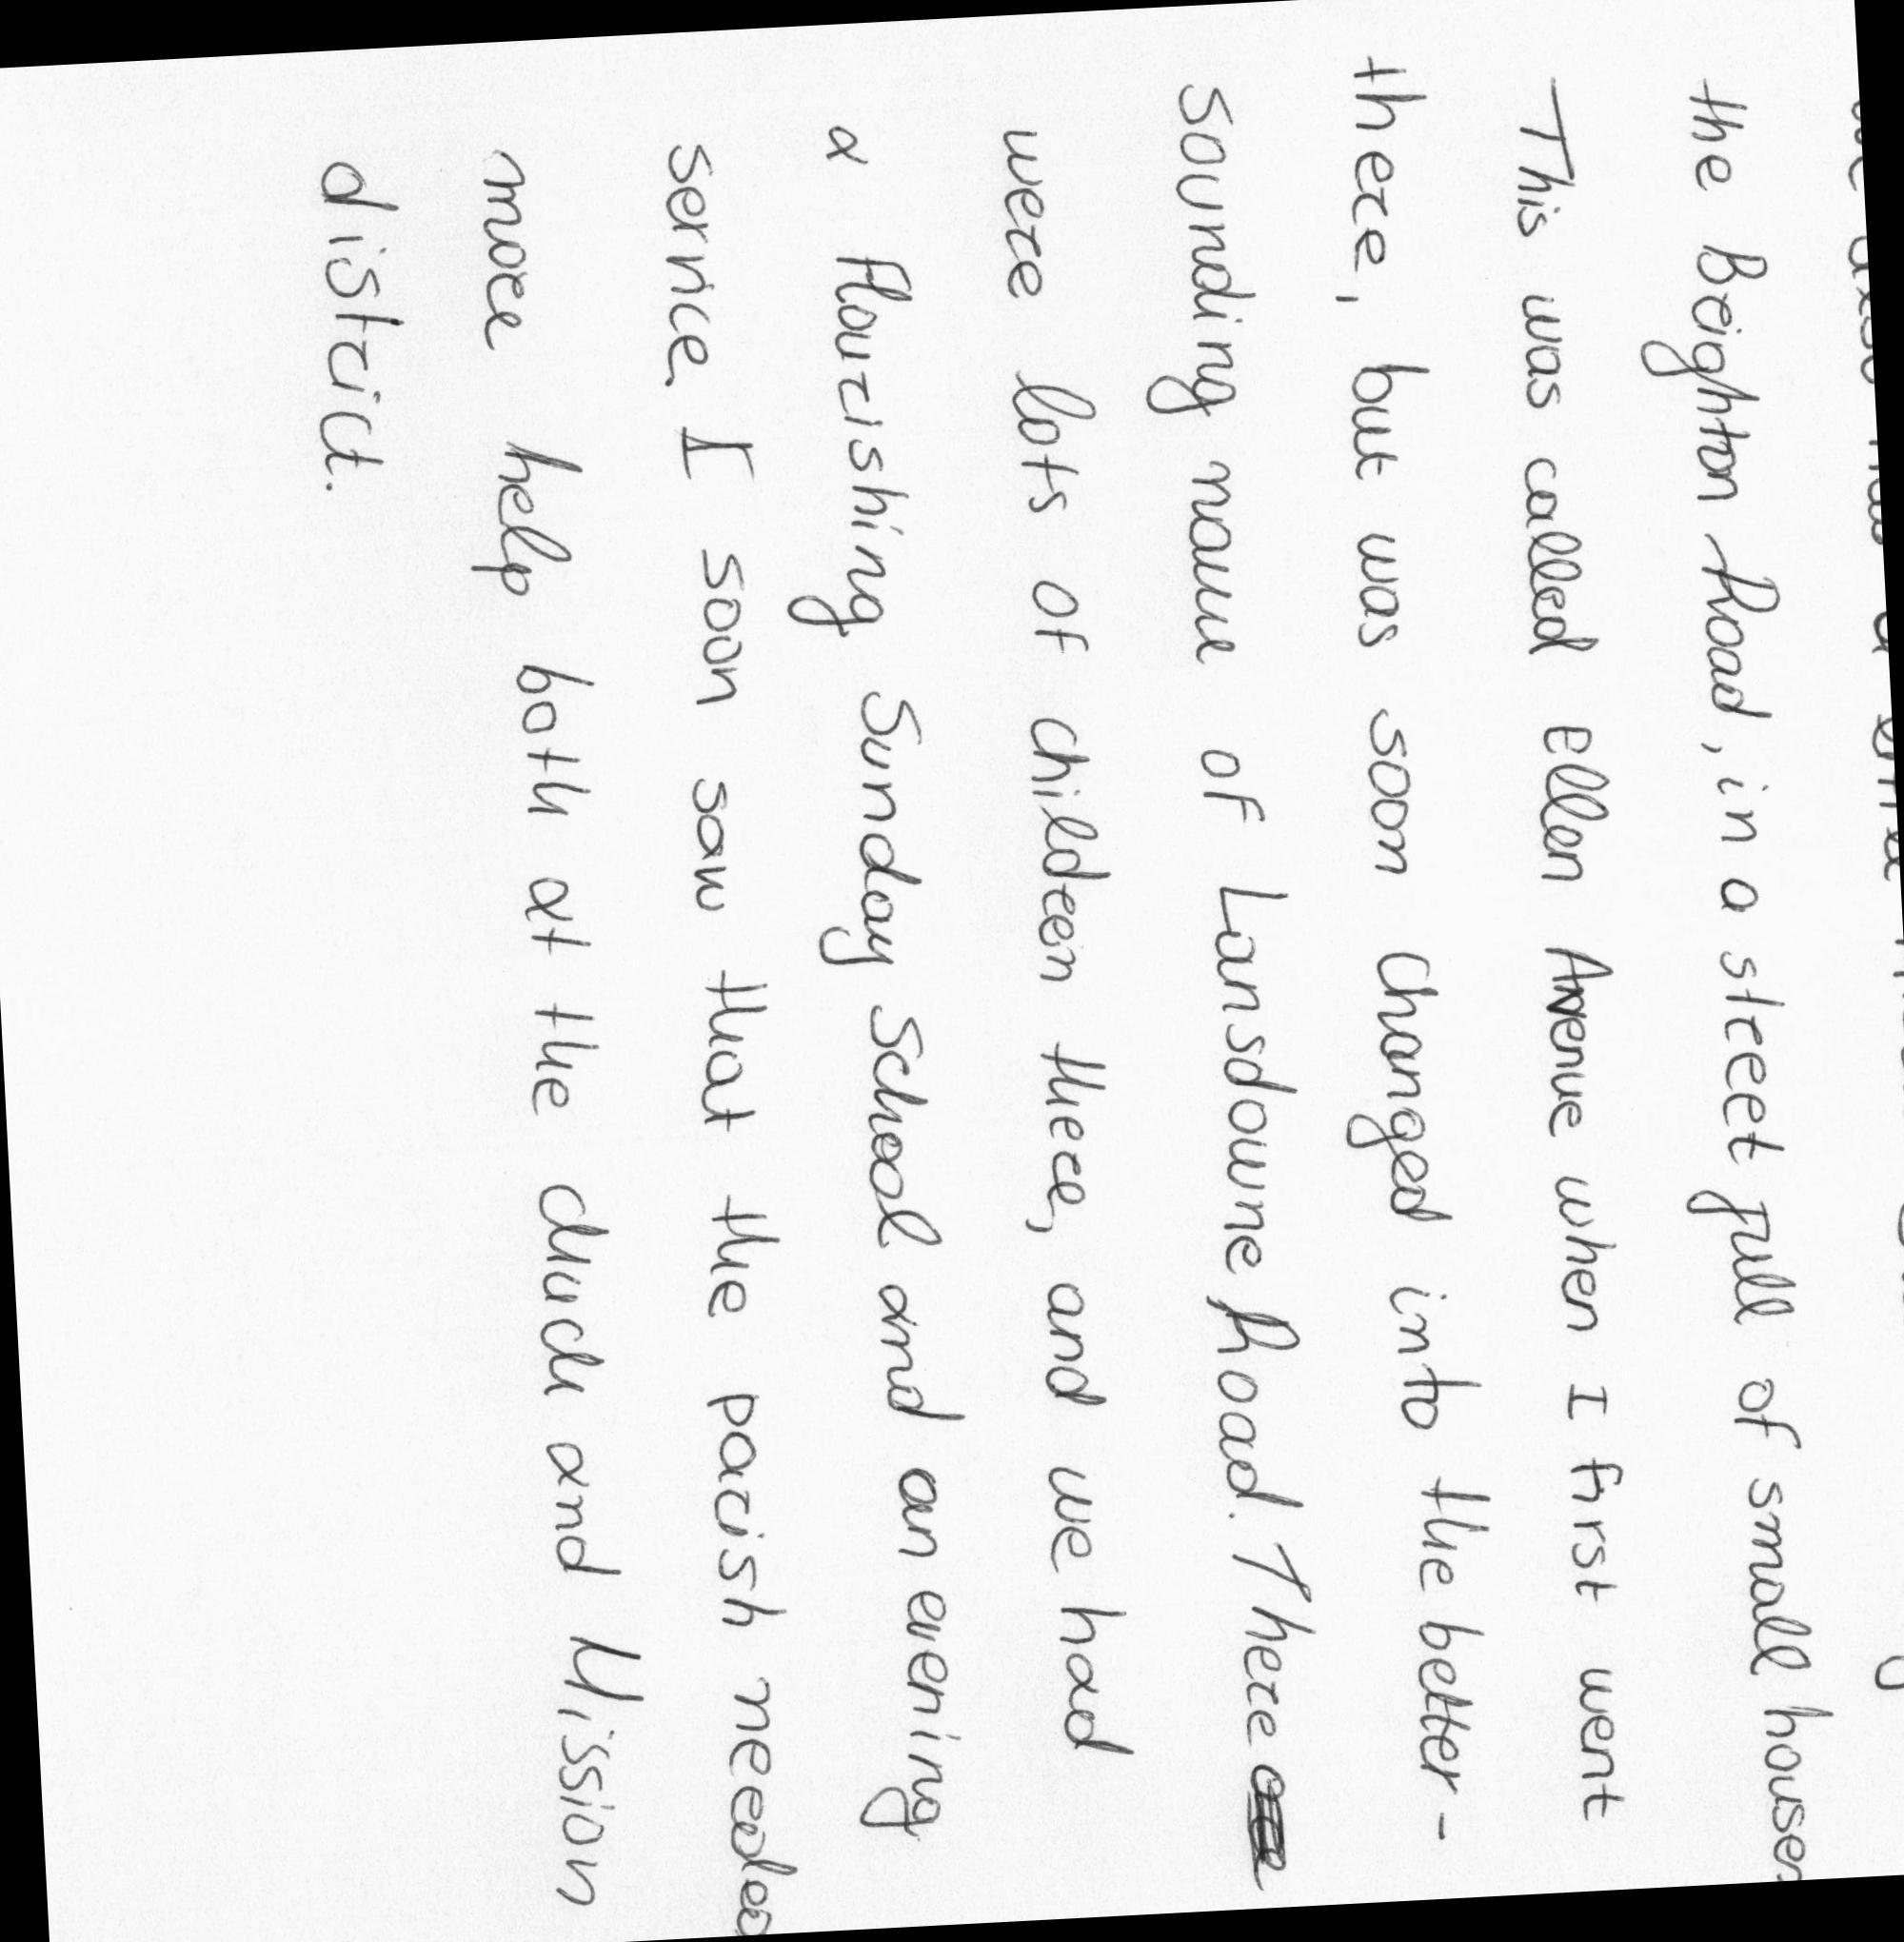 the Brighton Road, in a street full of small houses
This was called Ellen Avenue when I first went
there, but was soon changed into the better-
sounding name of Lansdowne Road. There
were lots of children there, and we had
a flourishing Sunday School and an evening
service. I soon saw that the parish needed
more help both at the church and Mission
district.